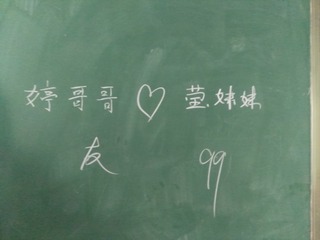 婷哥哥♡莹妹妹
友 99